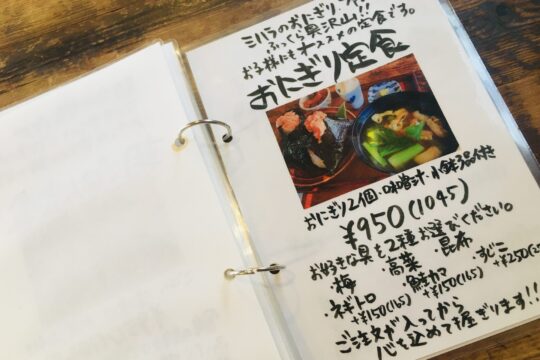 ミハラのおにぎり・
ふっくら具沢山!!
お子様にもオススメの定食です。
おにぎり定食
おにぎり2個・味噌汁・小鉢3品付き
¥950(1045)
お好きな具を2種お選びください。
・梅 ・高菜 ・昆布
・ネギトロ ・鮭カマ ・すじこ
+¥150(165) +¥150(165) +¥250(2
ご注文が入ってから
心を込めて握ぎります!!